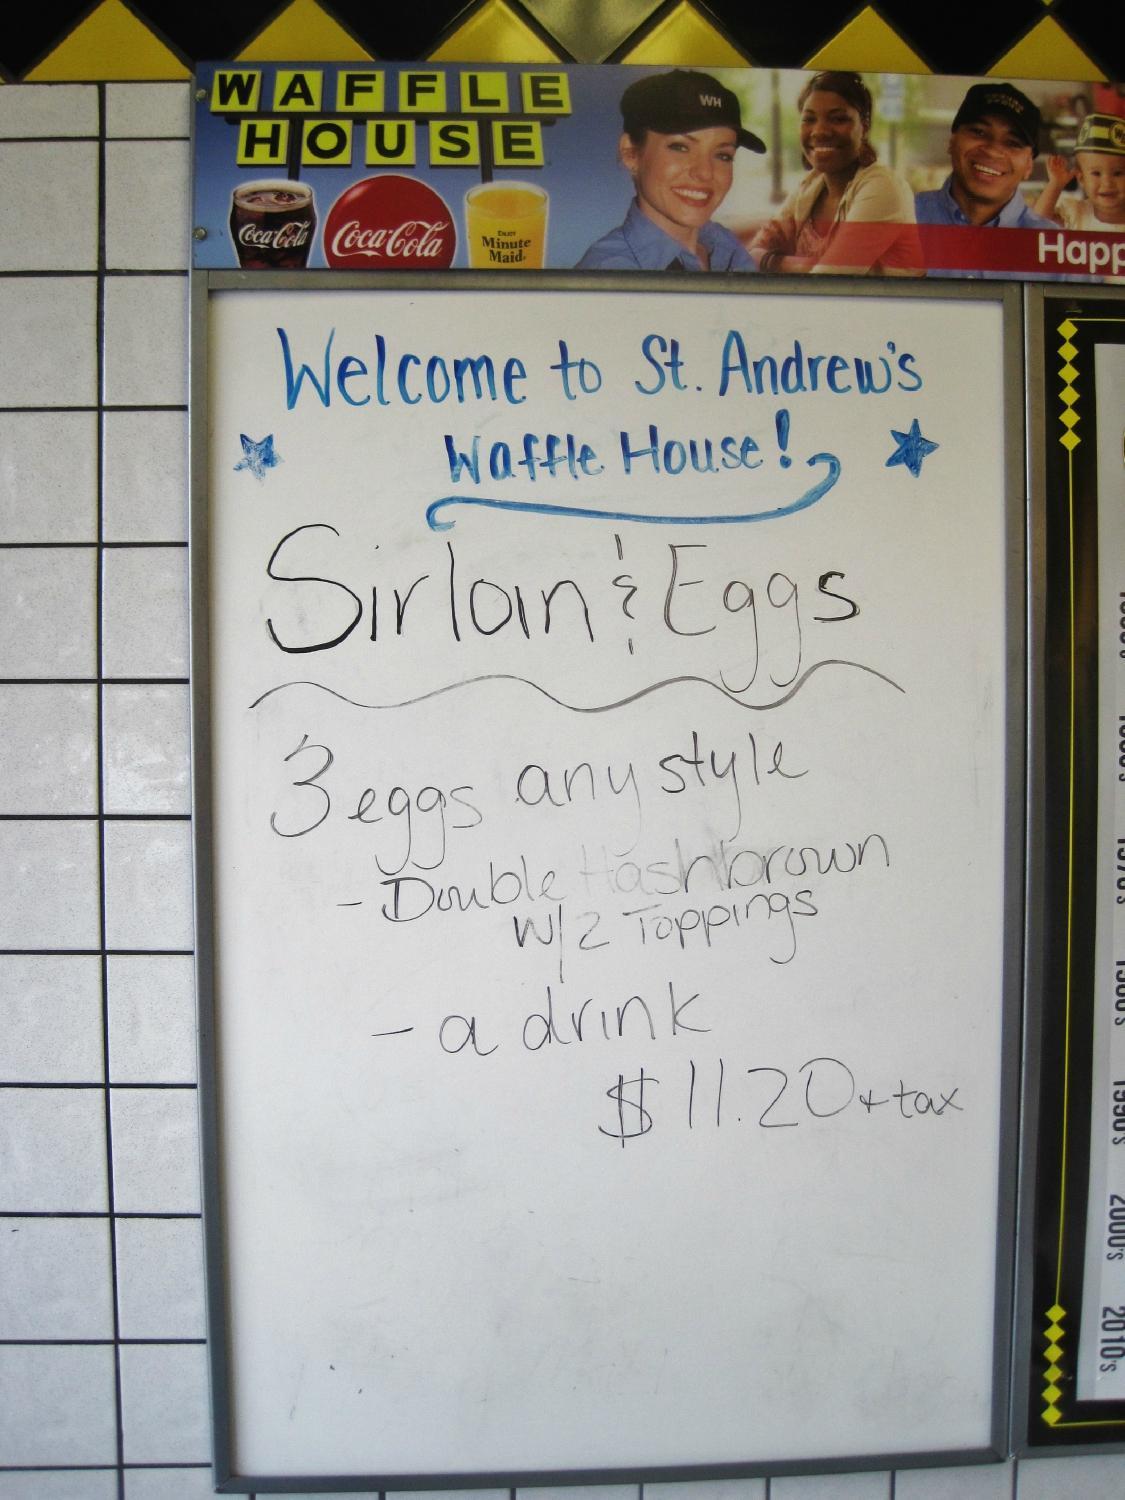 WAFFLE
HOUSE
WH
Coca-Cola
Coca-Cola
ENJOY
Minute
Maid
Happ
Welcome to St. Andrew's
Waffle House!
Sirloin & Eggs
3 eggs any style
- Double Hashbrown
w/2 Toppings
- a drink
$11.20 + tax
1970's
1980's
1990's
2000's
2010's